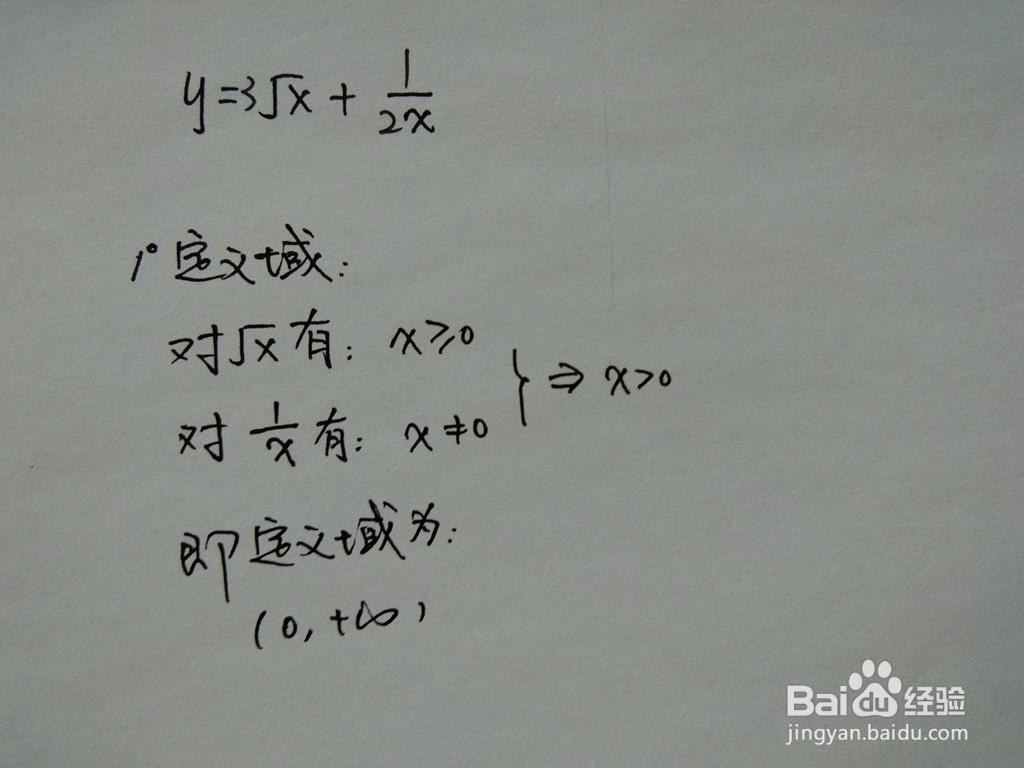 y=3√x + 1/2x
1° 定义域:
对√x 有: x≥0
对 1/x 有: x≠0
} ⇒ x>0
即定义域为:
(0,+∞)
Bai du 经验
jingyan.baidu.com